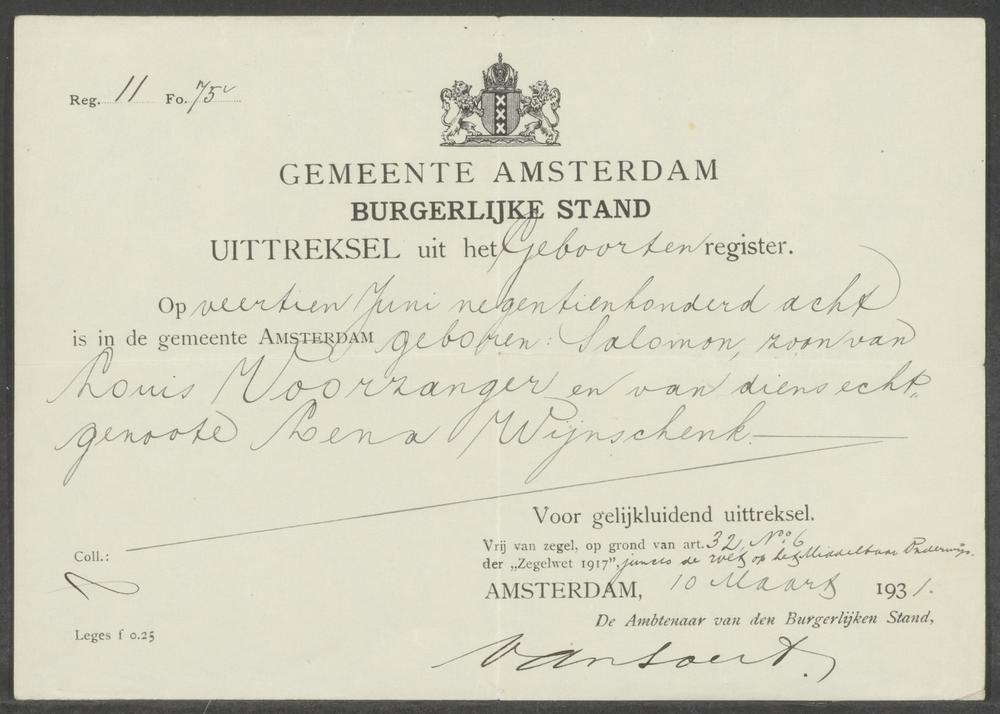 Reg. 11 Fo. 75v
GEMEENTE AMSTERDAM
BURGERLIJKE STAND
UITTREKSEL uit het Geboorten register.
Op veertien Juni negentienhonderd acht
is in de gemeente AMSTERDAM geboren: Salomon, zoon van
Louis Voorzanger en van diens echt-
genoote Lena Wijnschenk.
Voor gelijkluidend uittreksel.
Vrij van zegel, op grond van art. 32, No 6
der „Zegelwet 1917”, juncto de wet op het Middelbaar Onderwijs.
Coll.:
AMSTERDAM, 10 Maart 1931.
De Ambtenaar van den Burgerlijken Stand,
Leges f 0.25